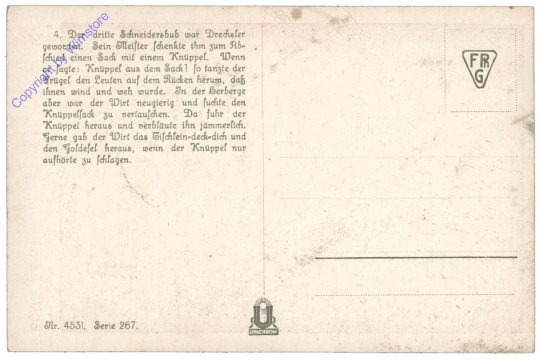 4. Der dritte Schneidersbub war Drechsler
geworden. Sein Meister schenkte ihm zum Ab-
schied einen Sack mit einem Knüppel. Wenn
er sagte: Knüppel aus dem Sack! so tanzte der
Prügel den Leuten auf dem Rücken herum, daß
ihnen wind und weh wurde. In der Herberge
aber war der Wirt neugierig und suchte den
Knüppelsack zu vertauschen. Da fuhr der
Knüppel heraus und verbläute ihn jämmerlich.
Gerne gab der Wirt das Tischlein-deck-dich und
den Goldesel heraus, wenn der Knüppel nur
aufhörte zu schlagen.
Copyright by Wumstore
FPR
G
Nr. 4531. Serie 267.
U
UVACHROM